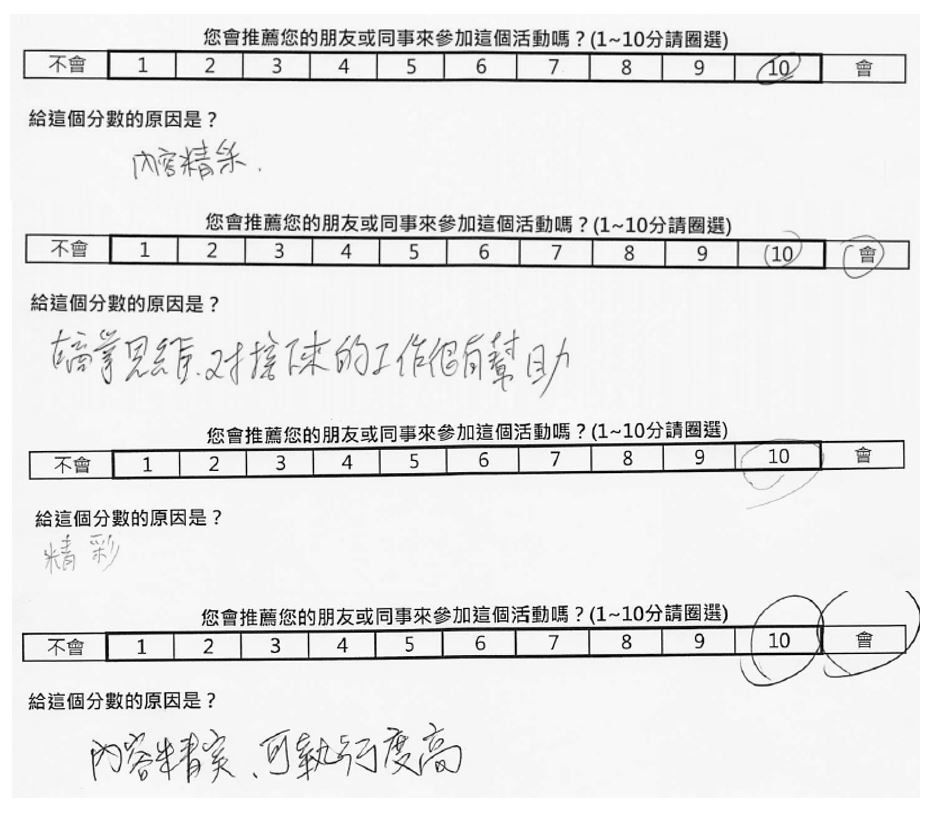 您會推薦您的朋友或同事來參加這個活動嗎？(1~10分請圈選)
不會 1 2 3 4 5 6 7 8 9 10 會
給這個分數的原因是？
內容精采.
您會推薦您的朋友或同事來參加這個活動嗎？(1~10分請圈選)
不會 1 2 3 4 5 6 7 8 9 10 會
給這個分數的原因是？
思維,对接下來的工作很有幫助
您會推薦您的朋友或同事來參加這個活動嗎？(1~10分請圈選)
不會 1 2 3 4 5 6 7 8 9 10 會
給這個分數的原因是？
精彩
您會推薦您的朋友或同事來參加這個活動嗎？(1~10分請圈選)
不會 1 2 3 4 5 6 7 8 9 10 會
給這個分數的原因是？
內容精实、可執行度高